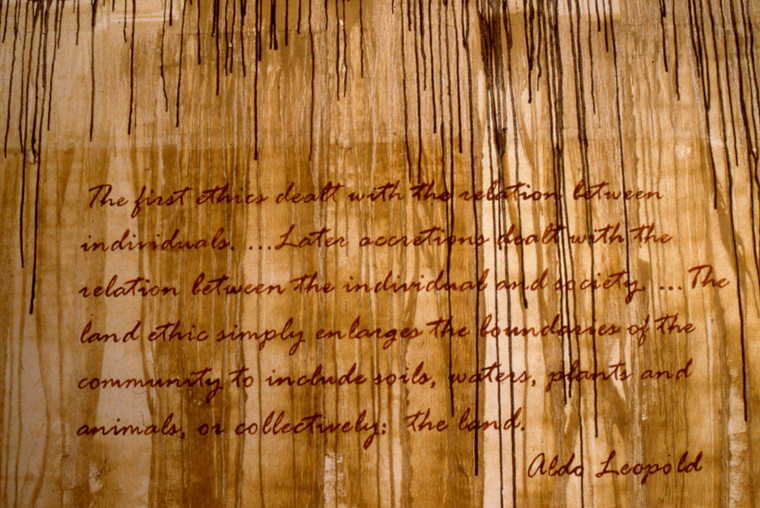 The first ethics dealt with the relation between
individuals. ...Later accretions dealt with the
relation between the individual and society. ...The
land ethic simply enlarges the boundaries of the
community to include soils, waters, plants and
animals, or collectively: the land.
Aldo Leopold